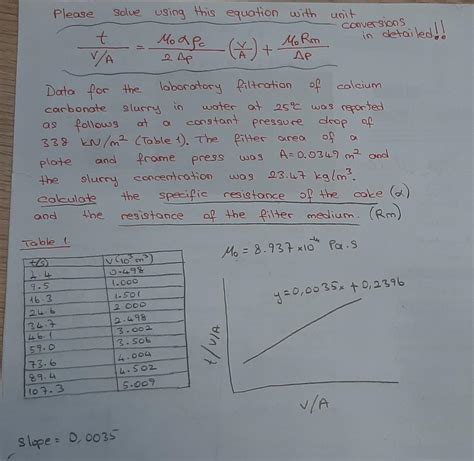 Please solve using this equation with unit
conversions
in detailed!!
t / V/A = μo α ρc / 2 Δp (V/A) + μo Rm / Δp
Data for the laboratory filtration of calcium
carbonate slurry in water at 25°C was reported
as follows at a constant pressure drop of
338 kN/m² (Table 1). The filter area of a
plate and frame press was A=0.0349 m² and
the slurry concentration was 23.47 kg/m³.
calculate the specific resistance of the cake (α)
and the resistance of the filter medium. (Rm)
Table 1
t(s) V(10³m³)
4.4 0.498
9.5 1.000
16.3 1.501
24.6 2.000
34.7 2.498
46.1 3.002
59.0 3.506
73.6 4.004
89.4 4.502
107.3 5.009
μo = 8.937 x10⁻⁴ Pa.s
y=0,0035x +0,2396
t/V/A
V/A
slope = 0,0035